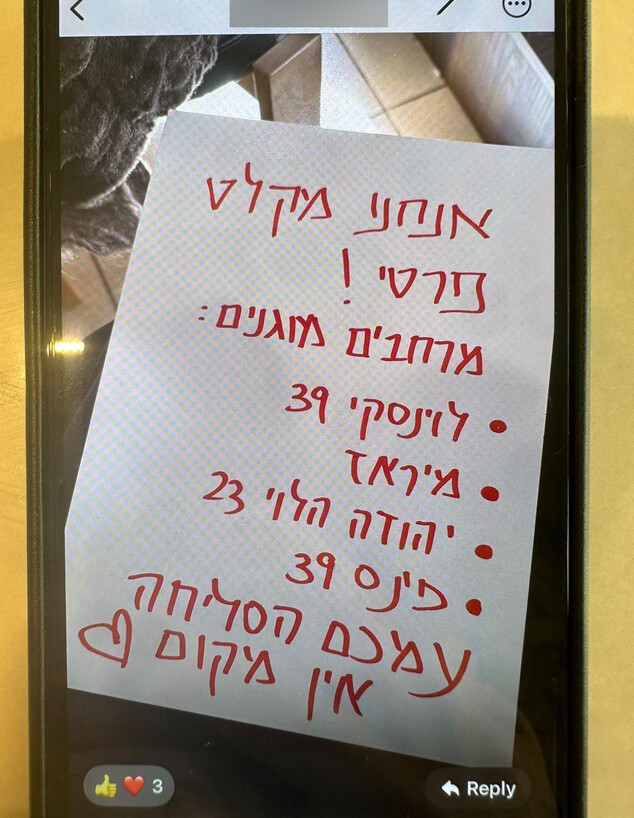 אנחנו מקלט
פרטי !
מרחבים מוגנים:
• לוינסקי 39
• מיראז
• יהודה הלוי 23
• פינס 39
עמכם הסליחה
אין מקום ♡
3
Reply